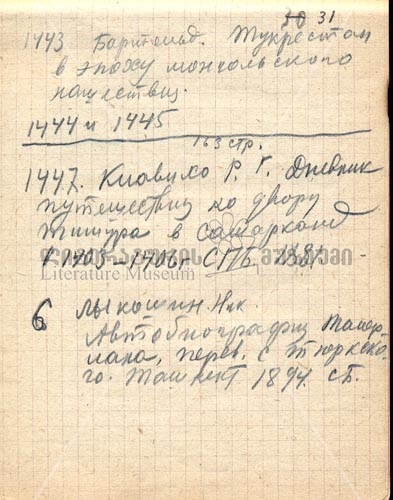 30 31
1443 Бартольд. Туркестан
в эпоху монгольского
нашествия.
1444 и 1445
163 стр.
1447. Клавихо Р. Г. Дневник
путешествия ко двору
Тимура в Самарканд
1403–1406г СПБ 1881
ლიტერატურის მუზეუმი
Literature Museum
6 Лыкошин. Ник.
Автобиография Тамер-
лана, перев. с тюркско-
го. Ташкент 1894.